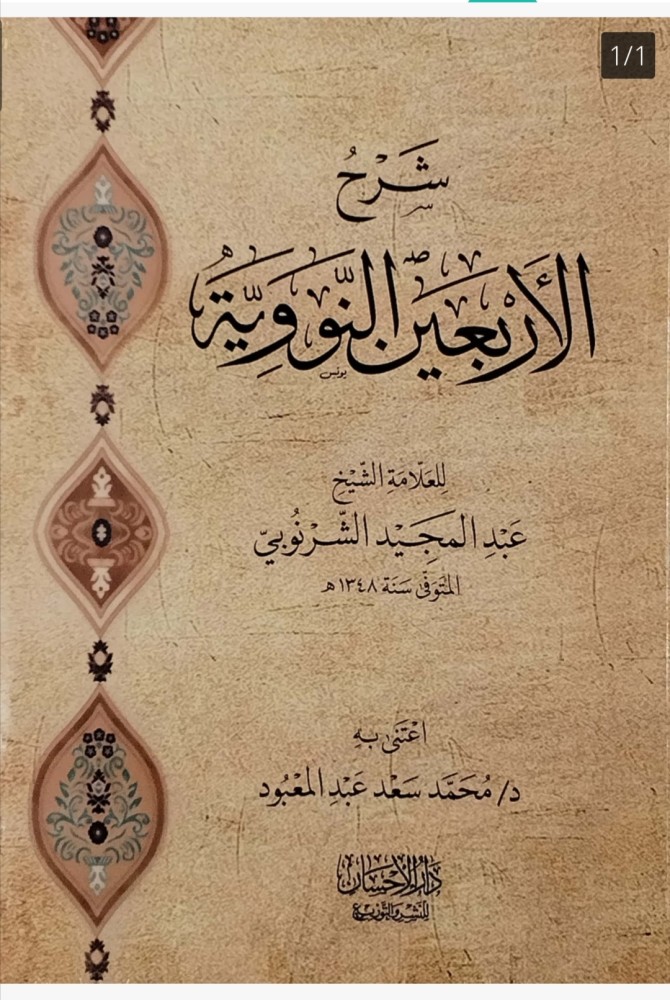 1/1
شَرْحُ
الأَرْبَعِينَ النَّوَوِيَّةِ
يونس
لِلعَلّامَةِ الشَّيْخِ
عَبْدِ المَجِيْدِ الشَّرْنُوبِيّ
المُتَوَفّىٰ سَنَة ١٣٤٨ هـ
اعْتَنىٰ بِهِ
د/ مُحَمَّد سَعْد عَبْدِ المَعْبُود
دار الإحسان
للنشر والتوزيع